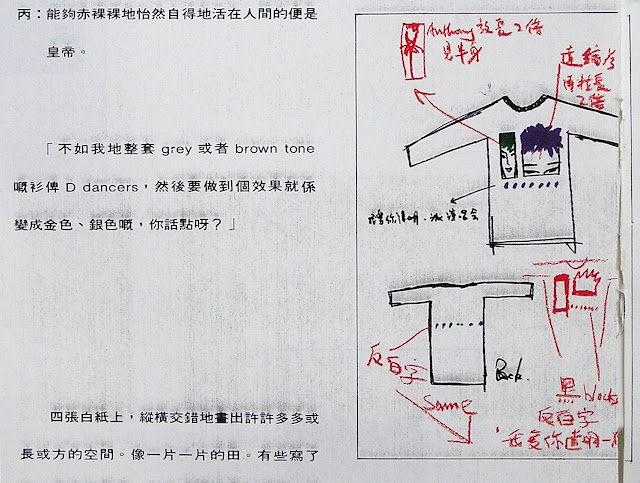 丙：能夠赤裸裸地怡然自得地活在人間的便是
皇帝。
「不如我地整套 grey 或者 brown tone
嘅衫俾 D dancers，然後要做到個效果就係
變成金色、銀色嘅，你話點呀？」
四張白紙上，縱橫交錯地畫出許許多多或
長或方的空間。像一片一片的田。有些寫了
Anthony 放長2倍
見半身
再拉長
2倍
反白字
Back.
Same
黑 blocks
反白字